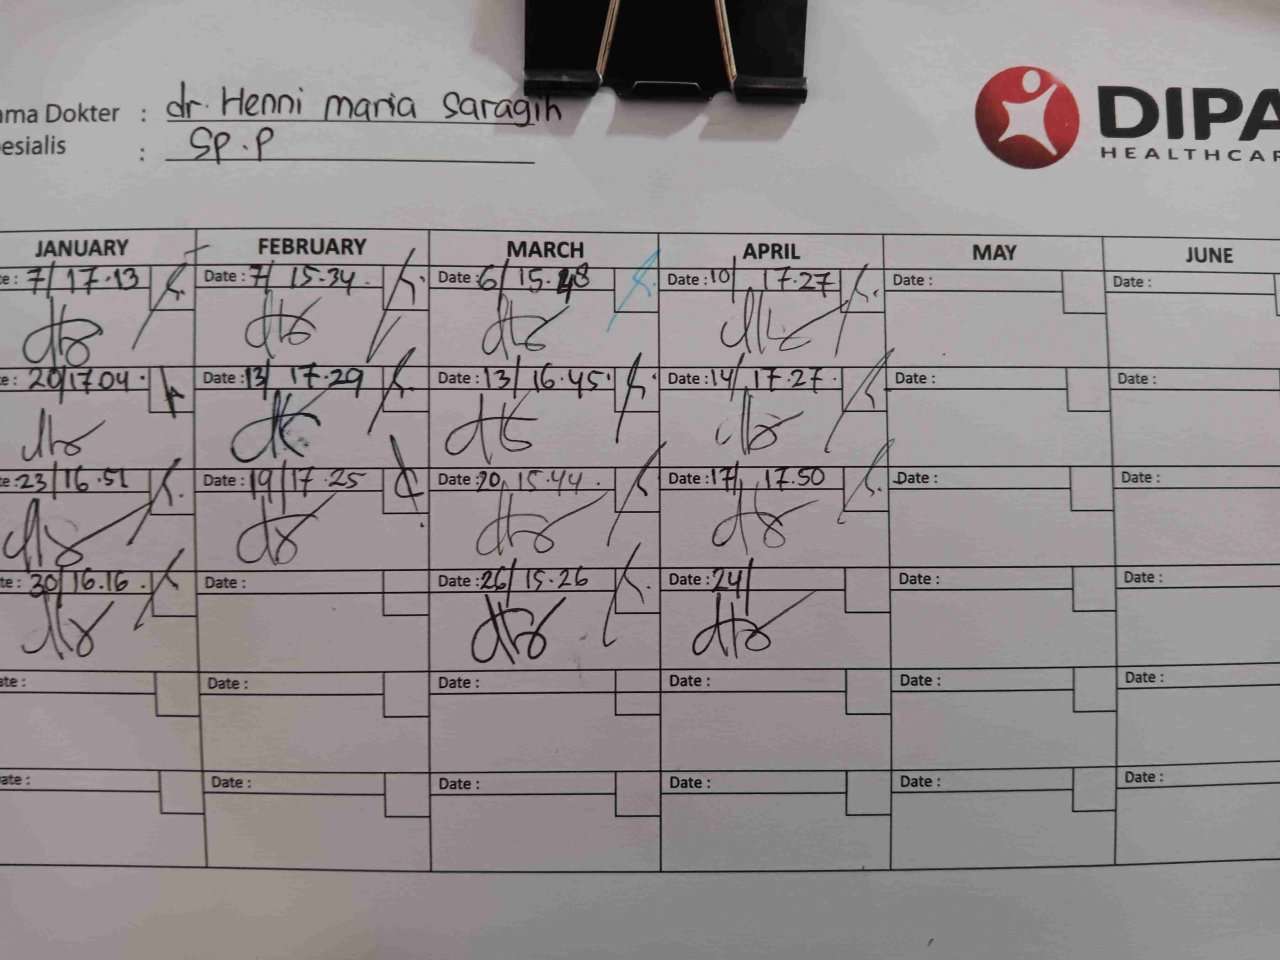 ama Dokter : dr. Henni maria Saragih
esialis : Sp.P
DIPA
HEALTHCAR
JANUARY FEBRUARY MARCH APRIL MAY JUNE
e: 7/ 17.13 Date: 7/ 15.34. Date: 6/ 15.48 Date: 10/ 17.27 Date: Date:
e: 20/17.04. Date: 13/ 17.29 Date: 13/ 16.45. Date: 14/ 17.27. Date: Date:
e: 23/16.51 Date: 19/17.25 Date: 20/ 15.44. Date: 17/ 17.50 Date: Date:
te: 30/16.16. Date: Date: 26/ 15.26 Date: 24/ Date: Date:
ate: Date: Date: Date: Date: Date:
ate: Date: Date: Date: Date: Date: